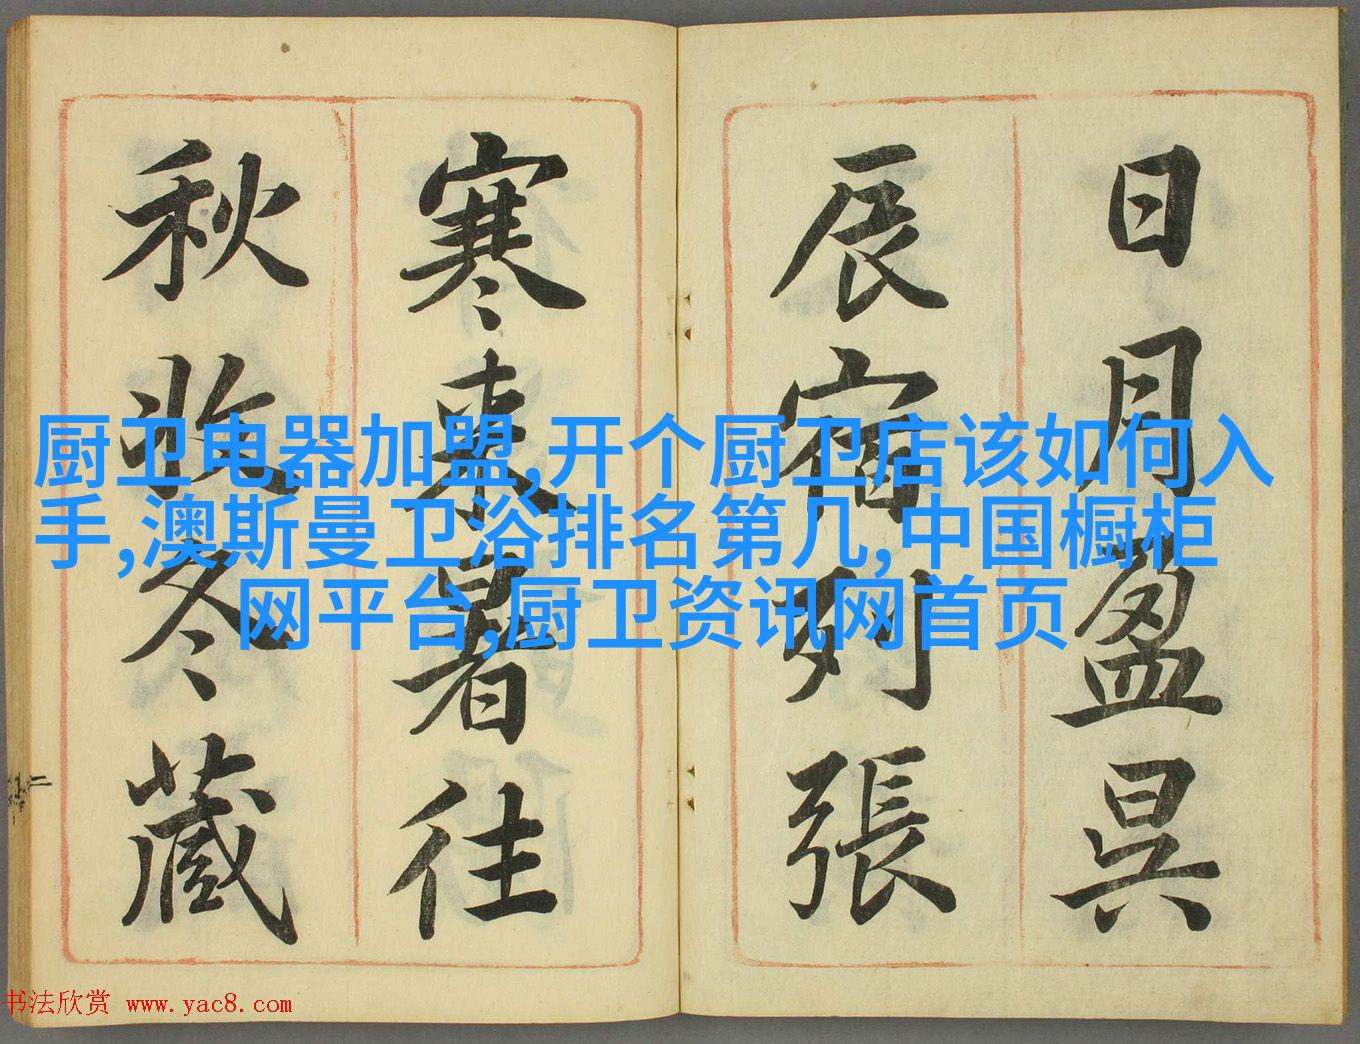 日月盈昃
辰宿列張
寒来暑往
秋收冬藏
厨卫电器加盟,开个厨卫店该如何入
手,澳斯曼卫浴排名第几,中国橱柜
网平台,厨卫资讯网首页
二
书法欣赏 www.yac8.com